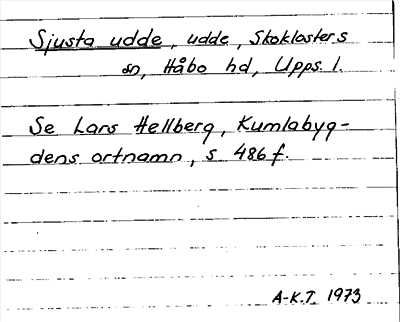 Sjusta udde, udde, Skoklosters
sn, Håbo hd, Upps. l.
Se Lars Hellberg, Kumlabyg-
dens ortnamn, s 486 f.
A-K.T. 1973